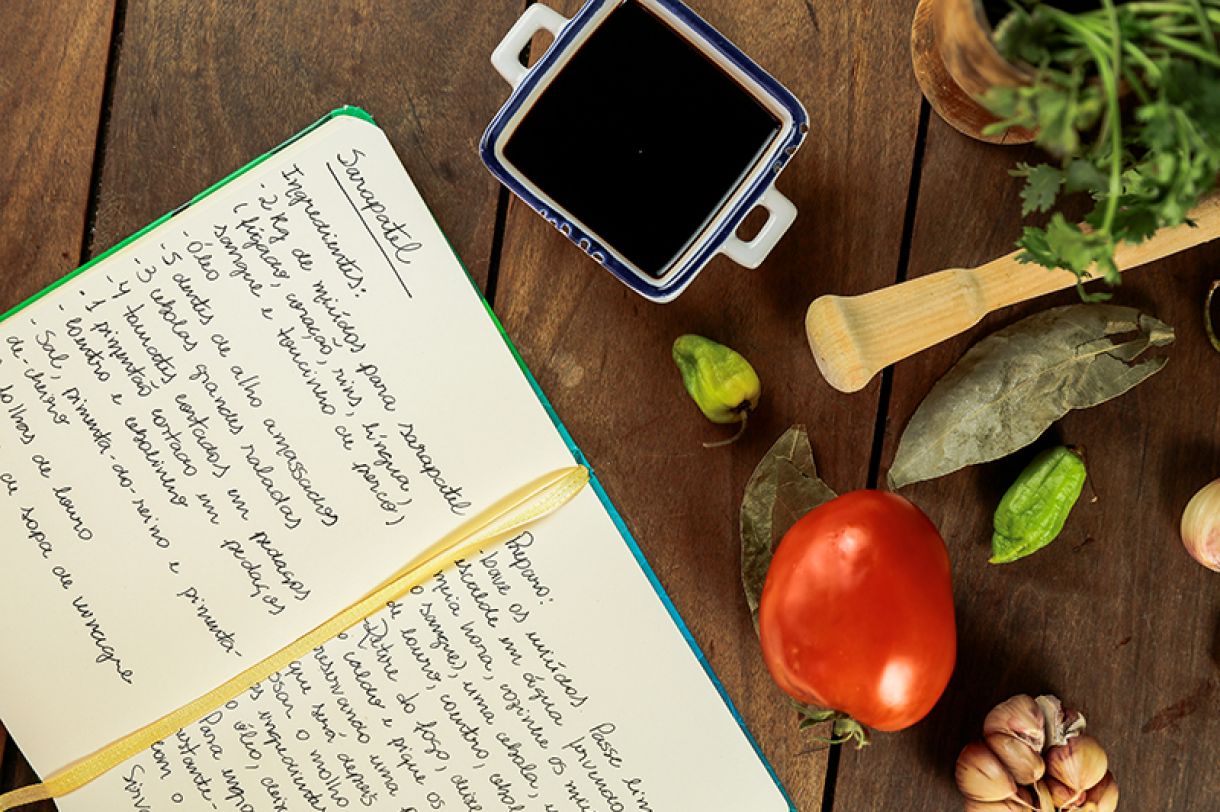 Sarapatel
Ingredientes:
- 2 Kg de miúdos para sarapatel
(fígado, coração, rins, língua,
sangue e toucinho de porco)
- Óleo
- 5 dentes de alho amassados
- 3 cebolas grandes raladas
- 4 tomates cortados em pedaços
- 1 pimentão cortado em pedaços
- coentro e cebolinha
- Sal, pimenta-do-reino e pimenta-
de-cheiro
folhas de louro
de sopa de vinagre
Preparo:
- Lave os miúdos. Passe
escalde em água fervendo
hora, cozinhe os
o sangue), uma cebola,
de louro, coentro,
Retire do fogo, deixe
o caldo e pique os
reservando uma
que será depois
o molho
ingredientes
o óleo,
Para
com o